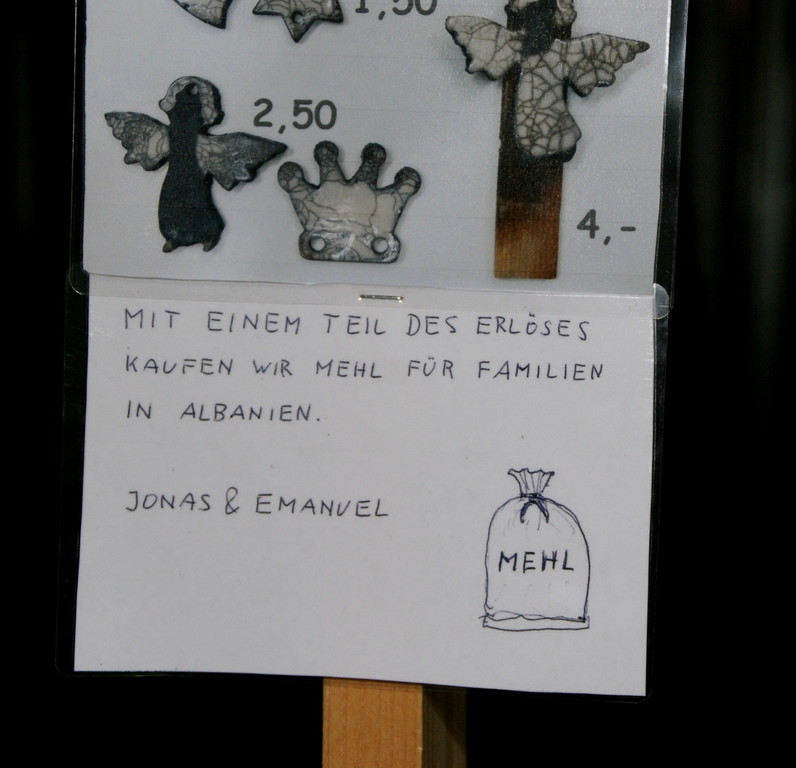 1,50
2,50
4,-
MIT EINEM TEIL DES ERLÖSES
KAUFEN WIR MEHL FÜR FAMILIEN
IN ALBANIEN.
JONAS & EMANUEL
MEHL